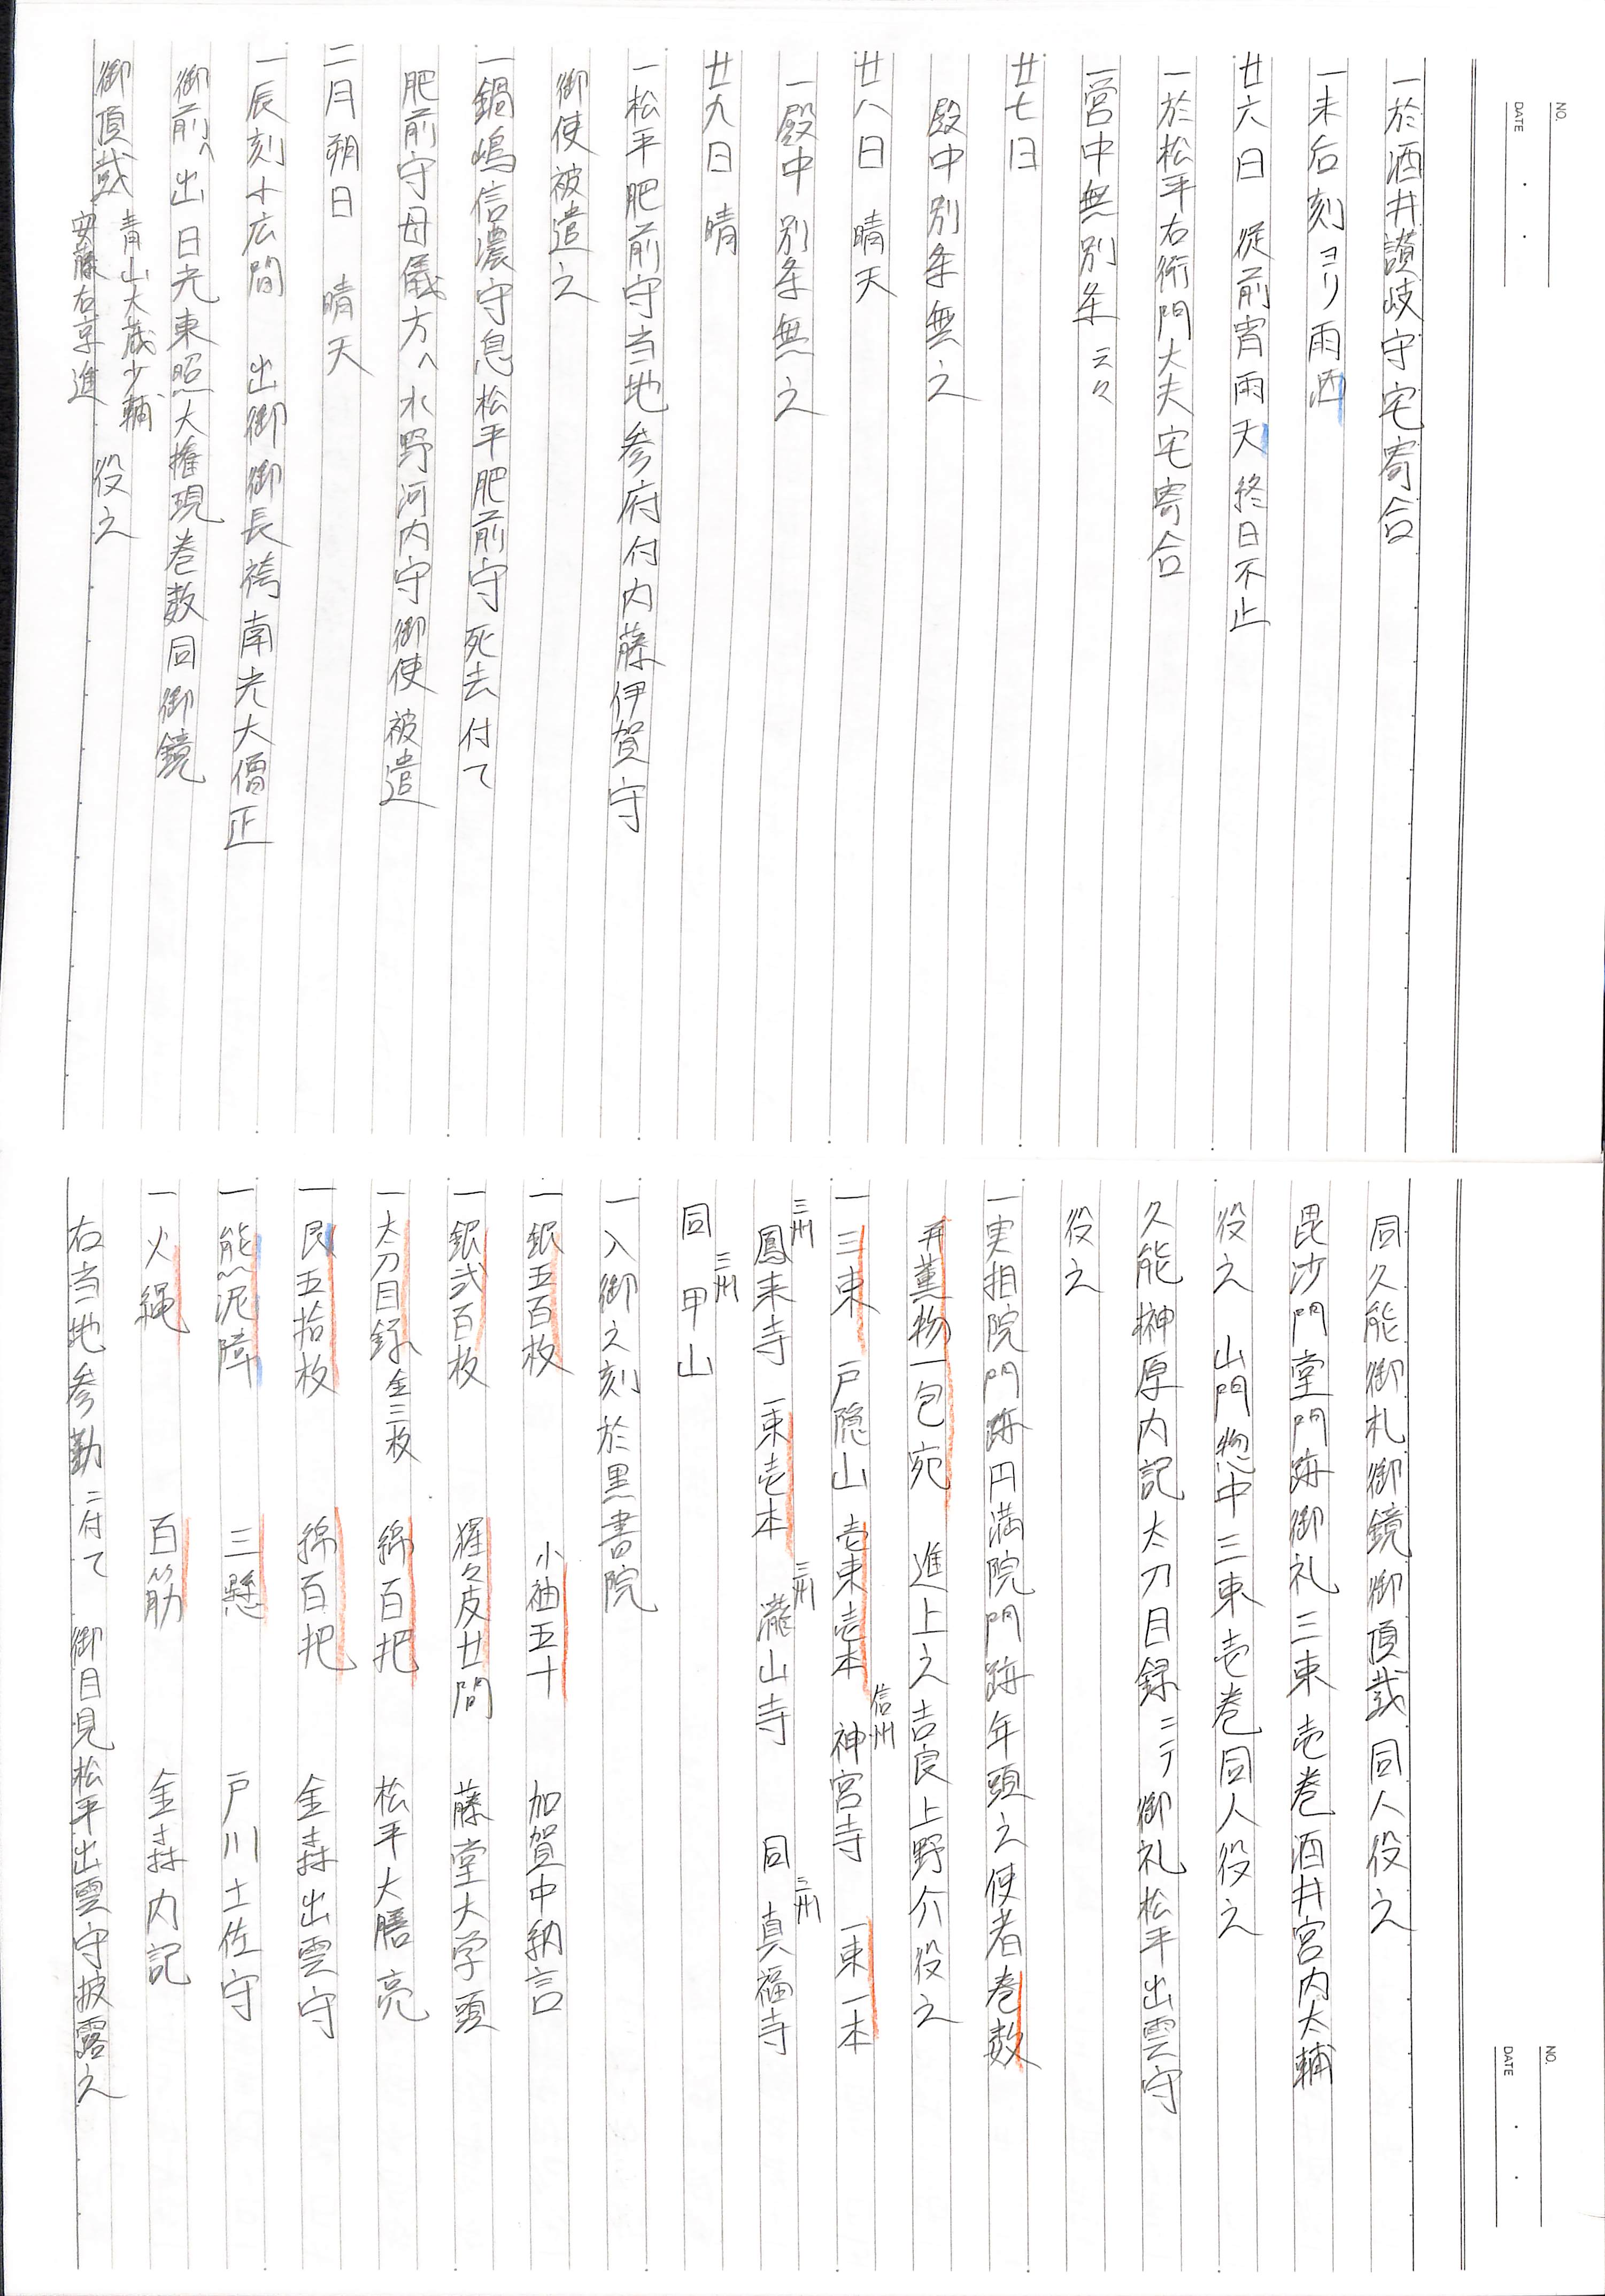 NO.
DATE
一於酒井讃岐守宅寄合
一未后刻ヨリ雨洒
廿六日 従前宵雨天終日不止
一於松平右衛門大夫宅寄合
一営中無別条 云々
廿七日
殿中別条無之
廿八日 晴天
一殿中別条無之
廿九日 晴
一松平肥前守当地参府付内藤伊賀守
御使被遣之
一鍋嶋信濃守息松平肥前守死去付て
肥前守母儀方へ水野河内守御使被遣
二月朔日 晴天
一辰刻大広間 出御御長袴南光大僧正
御前へ出日光東照大権現巻数同御鏡
御頂戴 青山大蔵少輔 安藤右京進 役之
NO.
DATE
同久能御札御鏡御頂戴同人役之
毘沙門堂門跡御礼三束壱巻酒井宮内大輔
役之 山門惣中三束壱巻同人役之
久能榊原内記太刀目録ニテ御礼松平出雲守
役之
一実相院門跡円満院門跡年頭之使者巻数
并薫物一包宛 進上之吉良上野介役之
一三束 戸隠山 壱束壱本 信州 神宮寺 一束一本
三州 鳳来寺 一束壱本 三州 瀧山寺 同 三州 真福寺
同 三州 甲山
一入御之刻於黒書院
一銀五百枚 小袖五十 加賀中納言
一銀弐百枚 猩々皮廿間 藤堂大学頭
一太刀目録金三枚 綿百把 松平大膳亮
一艮五拾枚 綿百把 金森出雲守
一熊泥障 三懸 戸川土佐守
一火縄 百筋 金森内記
右当地参勤ニ付て 御目見松平出雲守披露之